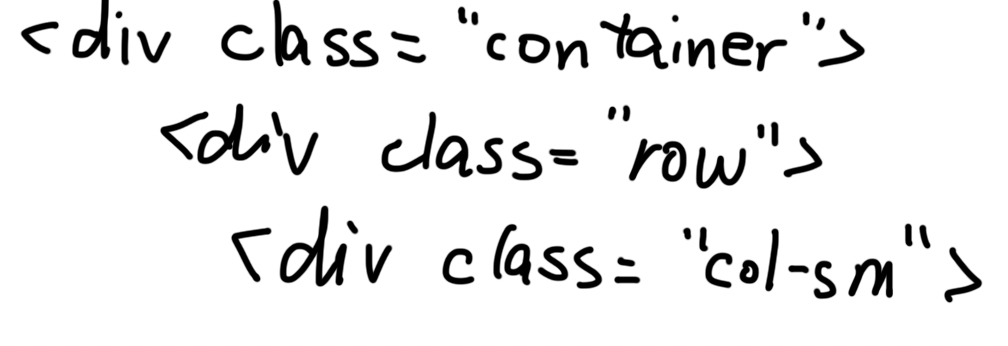 <div class="container">
<div class="row">
<div class="col-sm">